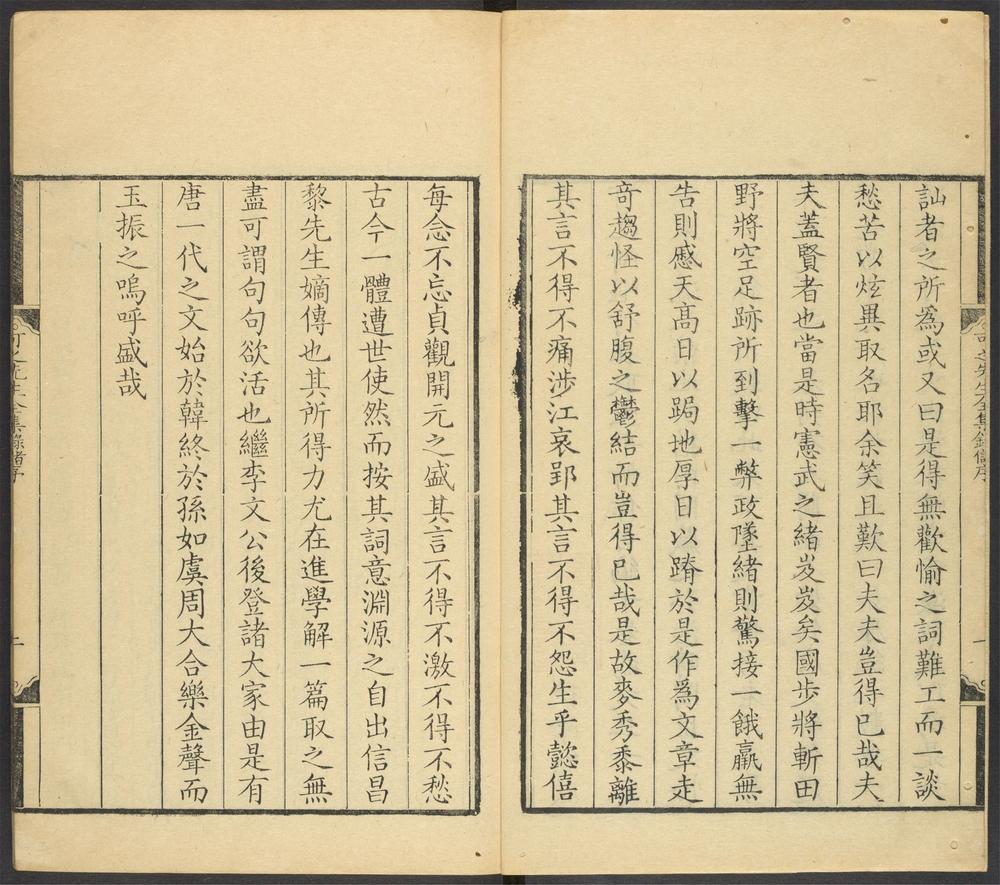 訕者之所為或又曰是得無歡愉之詞難工而一談
愁苦以炫異取名耶余笑且歎曰夫夫豈得已哉夫
夫蓋賢者也當是時憲武之緒岌岌矣國步將斬田
野將空足跡所到擊一弊政墜緒則驚接一餓羸無
告則慼天髙日以跼地厚日以蹐於是作為文章走
竒趨怪以舒腹之鬱結而豈得已哉是故麥秀黍離
其言不得不痛涉江哀郢其言不得不怨生乎懿僖
每念不忘貞觀開元之盛其言不得不激不得不愁
古今一體遭世使然而按其詞意淵源之自出信昌
黎先生嫡傳也其所得力尤在進學解一篇取之無
盡可謂句句欲活也繼李文公後登諸大家由是有
唐一代之文始於韓終於孫如虞周大合樂金聲而
玉振之嗚呼盛哉
可之先生全集錄
二